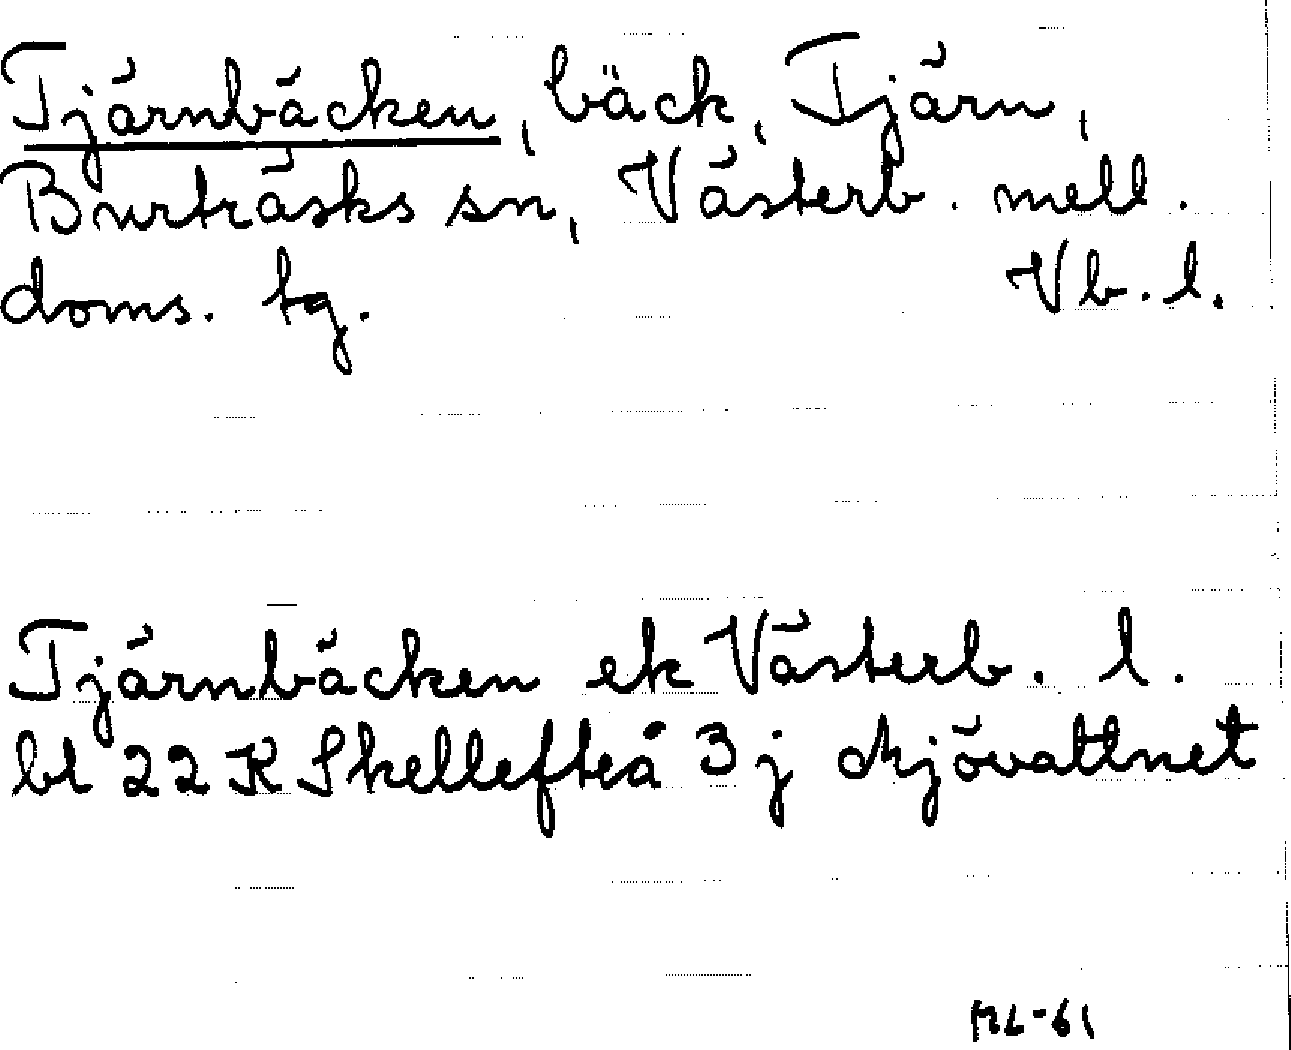 Tjärnbäcken, bäck, Tjärn,
Burträsks sn, Västerb. mell.
doms. tg. Vb. l.
Tjärnbäcken ek Västerb. l.
bl 22 K Skellefteå 3 j Mjövattnet
ML-61